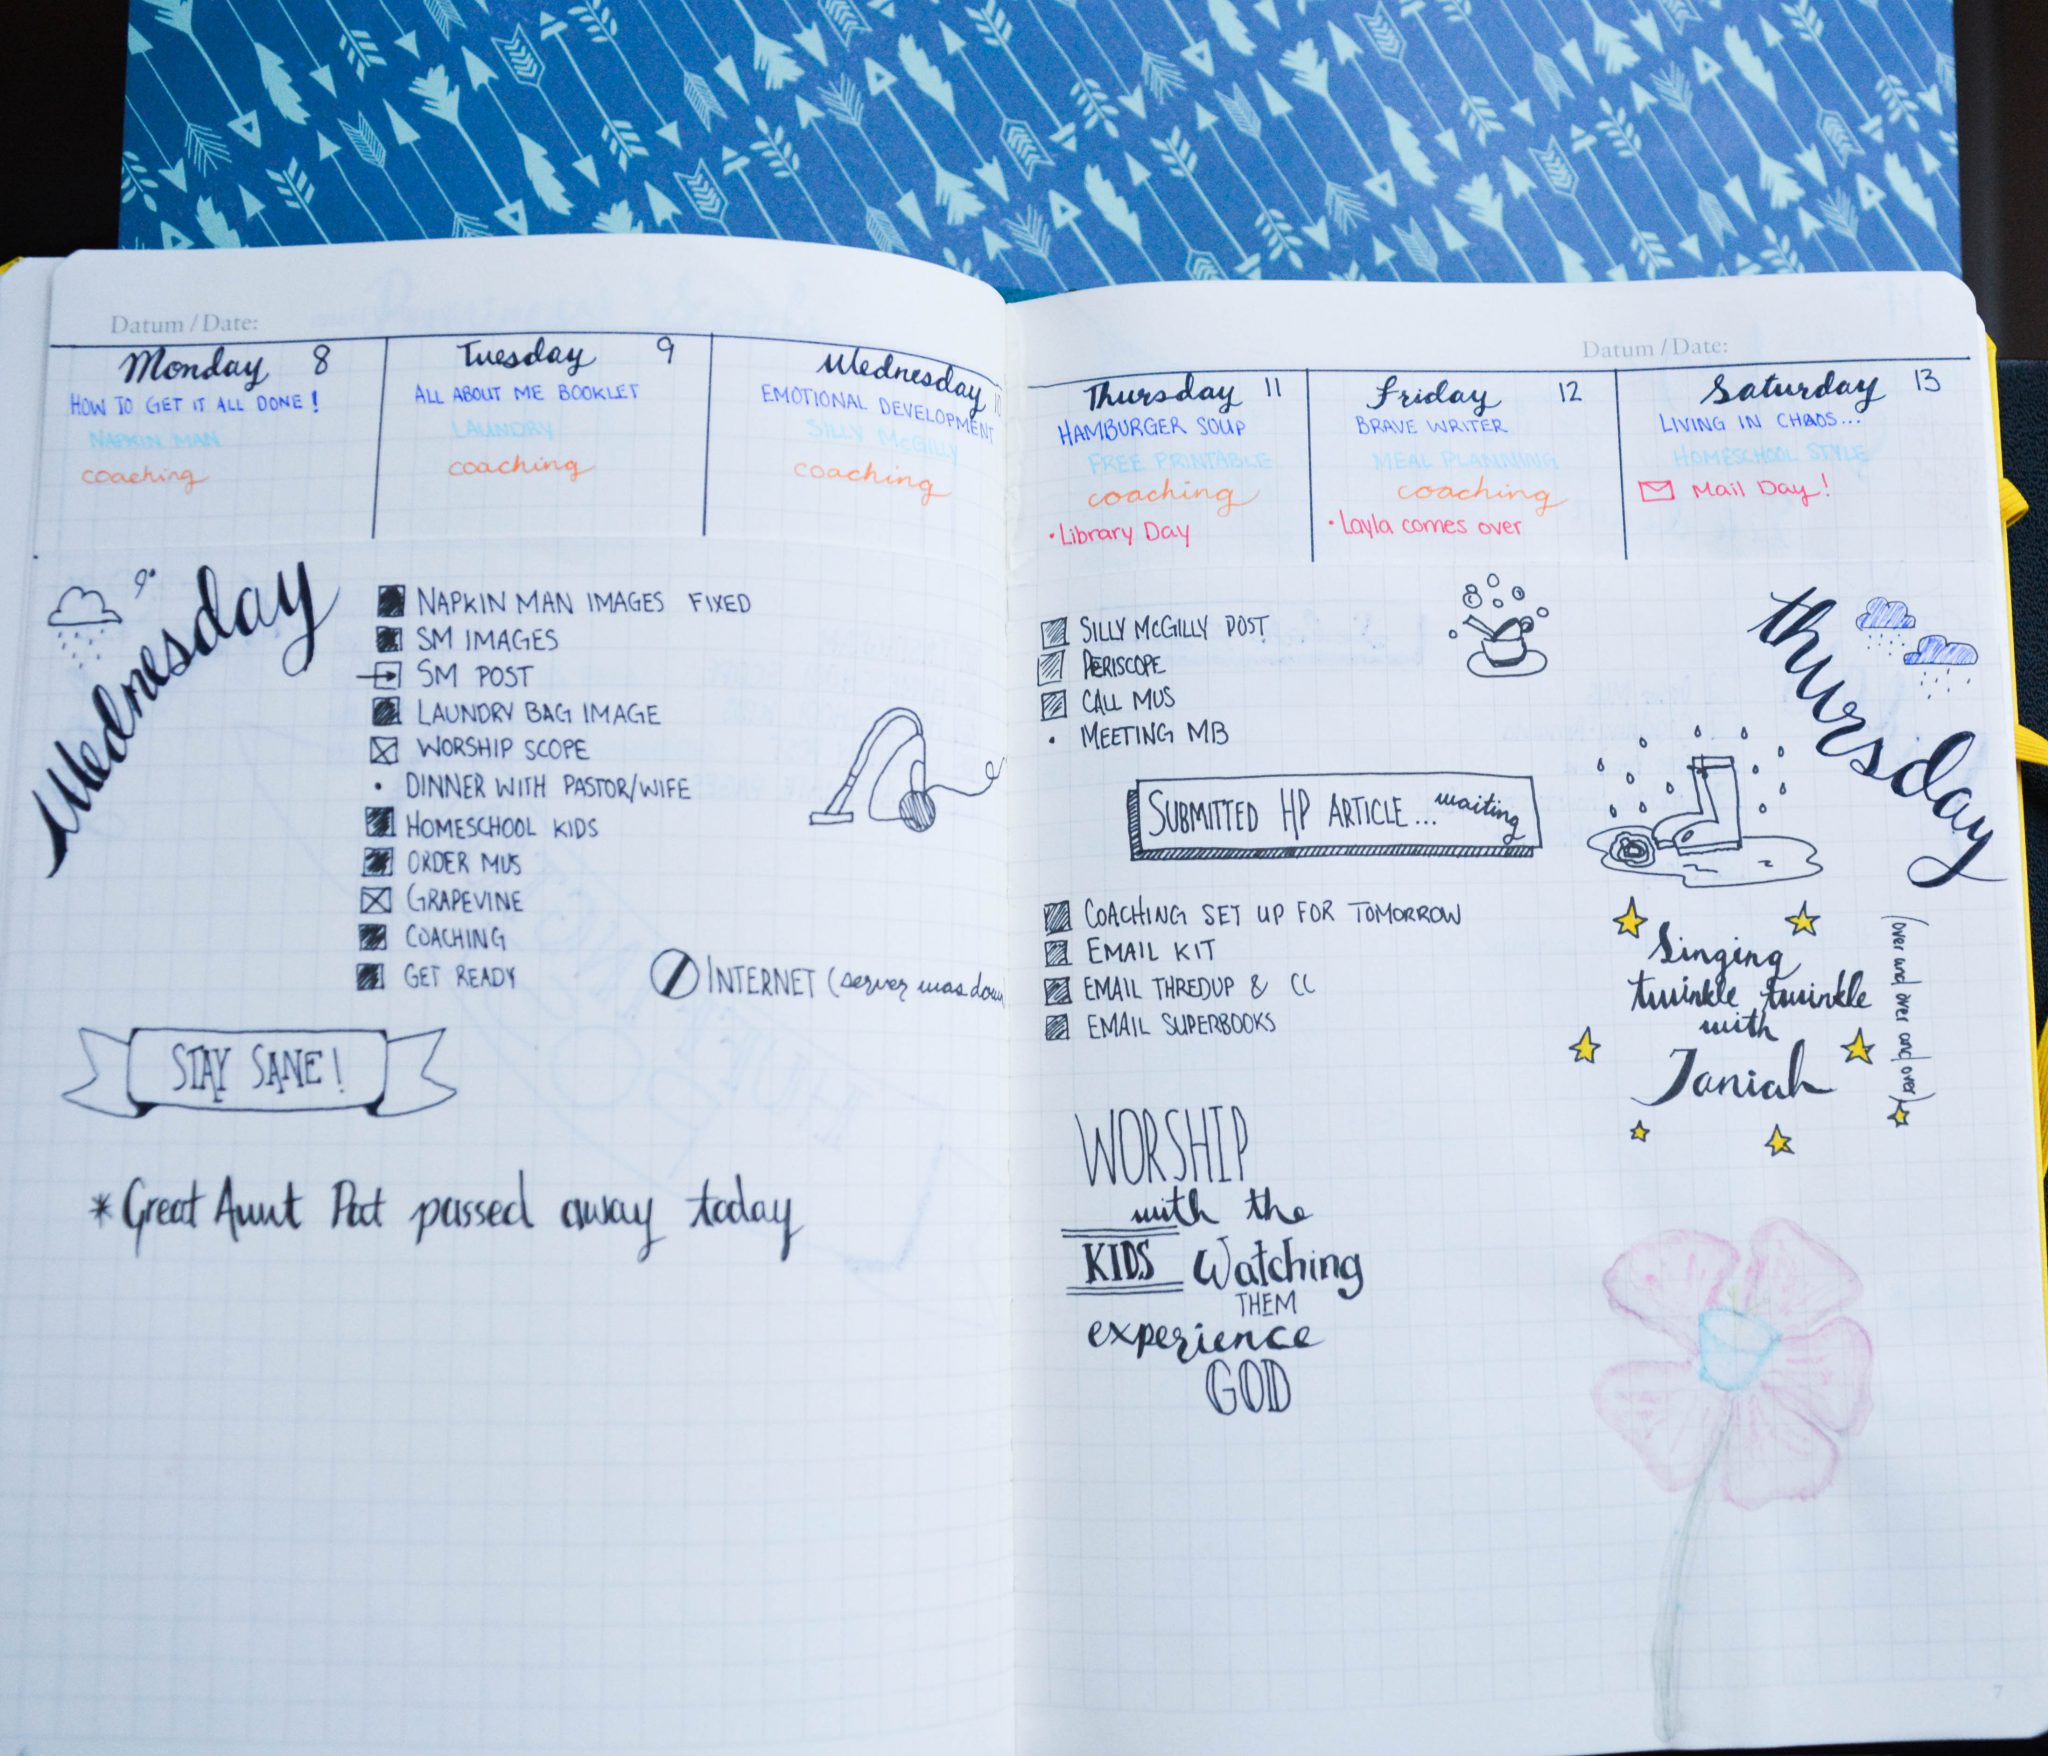 Datum / Date:
Monday 8
HOW TO GET IT ALL DONE!
NAPKIN MAN
coaching
Tuesday 9
ALL ABOUT ME BOOKLET
LAUNDRY
coaching
Wednesday 10
EMOTIONAL DEVELOPMENT
SILLY McGILLY
coaching
Wednesday
9°
NAPKIN MAN IMAGES FIXED
SM IMAGES
SM POST
LAUNDRY BAG IMAGE
WORSHIP SCOPE
• DINNER WITH PASTOR/WIFE
HOMESCHOOL KIDS
ORDER MUS
GRAPEVINE
COACHING
GET READY
INTERNET (server was down)
STAY SANE!
*Great Aunt Pat passed away today
Datum / Date:
Thursday 11
HAMBURGER SOUP
FREE PRINTABLE
coaching
• Library Day
Friday 12
BRAVE WRITER
MEAL PLANNING
coaching
• Layla comes over
Saturday 13
LIVING IN CHAOS...
HOMESCHOOL STYLE
Mail Day!
Thursday
SILLY McGILLY POST
PERISCOPE
CALL MUS
• MEETING MB
SUBMITTED HP ARTICLE... waiting
COACHING SET UP FOR TOMORROW
EMAIL KIT
EMAIL THREDUP & CC
EMAIL SUPERBOOKS
Singing
twinkle twinkle
with
Janiah
(over and over and over)
WORSHIP
with the
KIDS Watching
THEM
experience
GOD
7